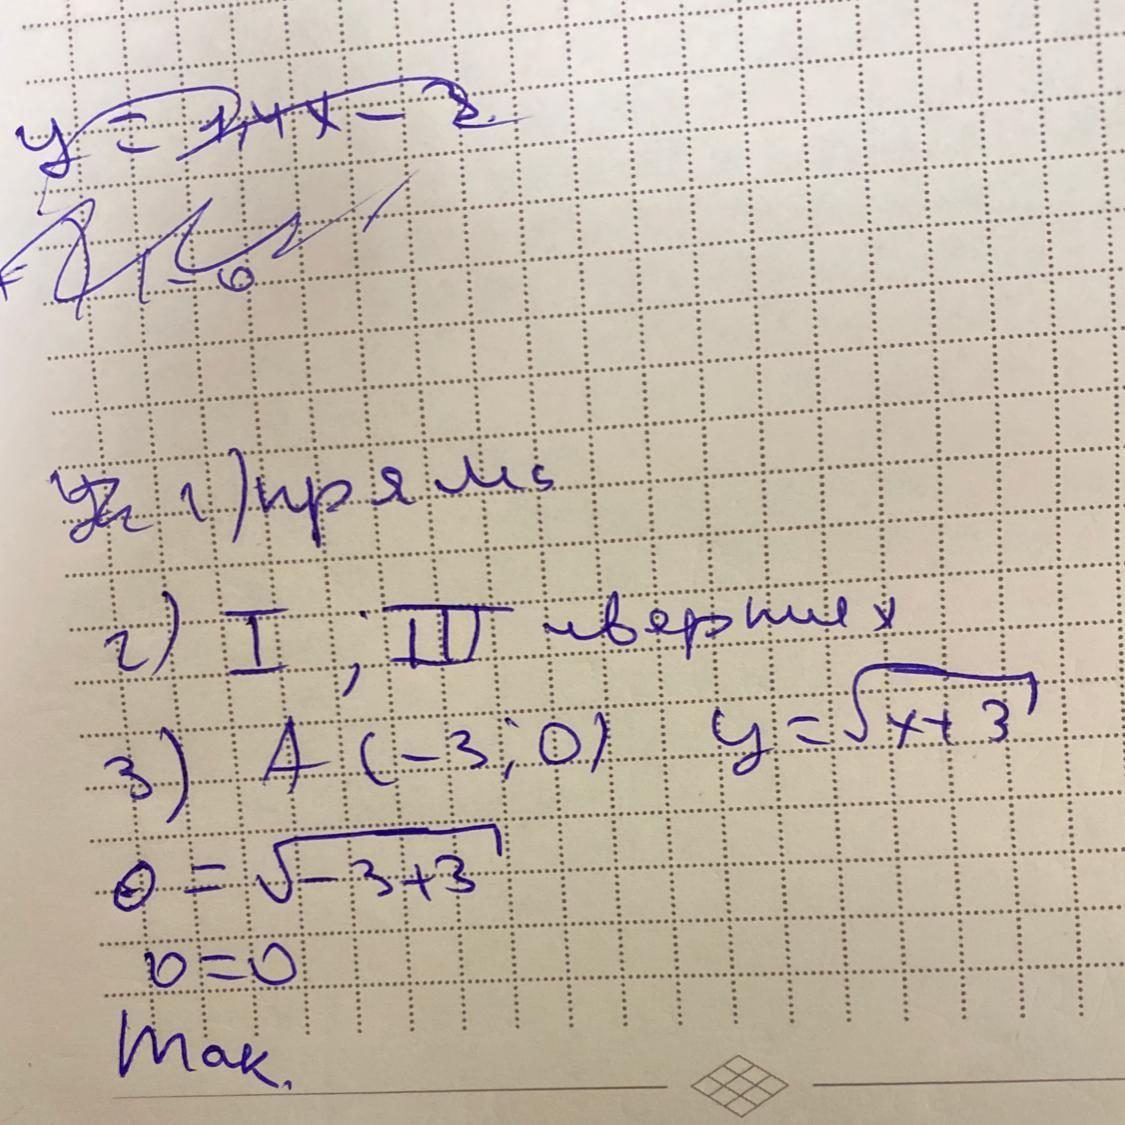 y = 1,4x - 2
1) пряма
2) I ; III чвертях
3) A (-3; 0) y = √x+3
0 = √-3+3
0 = 0
Так.